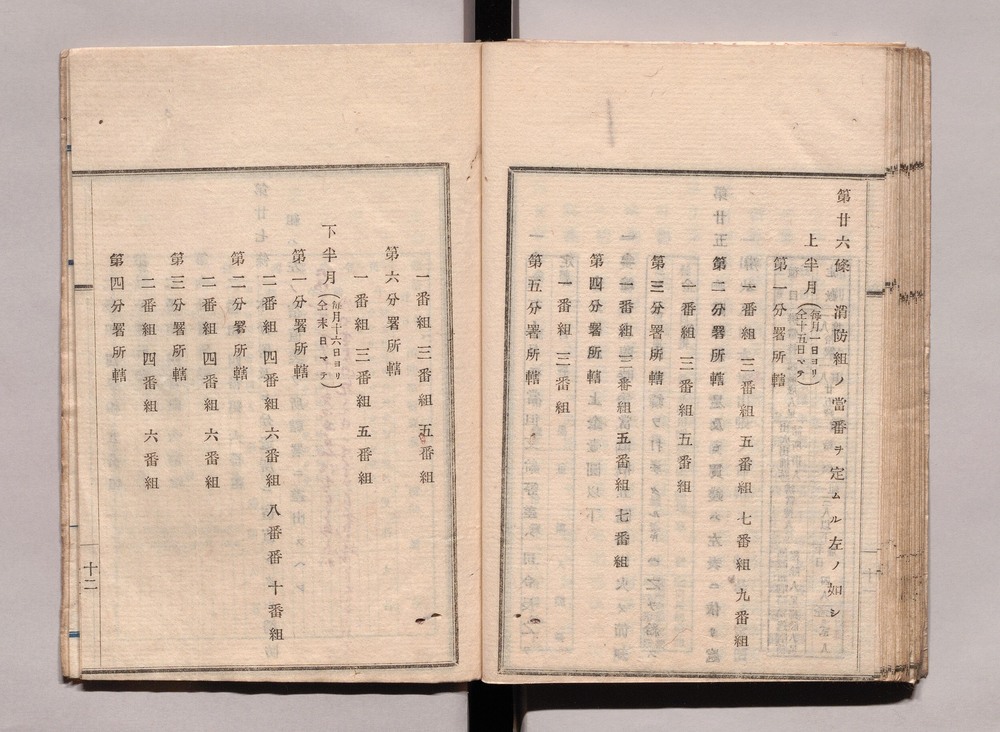 第廿六條 消防組ノ當番ヲ定ムル左ノ如シ
上半月(每月一日ヨリ仝十五日マテ)
第一分署所轄
一番組 三番組 五番組 七番組 九番組
第二分署所轄
一番組 三番組 五番組
第三分署所轄
一番組 三番組 五番組 七番組
第四分署所轄
一番組 三番組
第五分署所轄
一番組 三番組 五番組
第六分署所轄
一番組 三番組 五番組
下半月(每月十六日ヨリ仝末日マテ)
第一分署所轄
二番組 四番組 六番組 八番番 十番組
第二分署所轄
二番組 四番組 六番組
第三分署所轄
二番組 四番組 六番組
第四分署所轄
十二